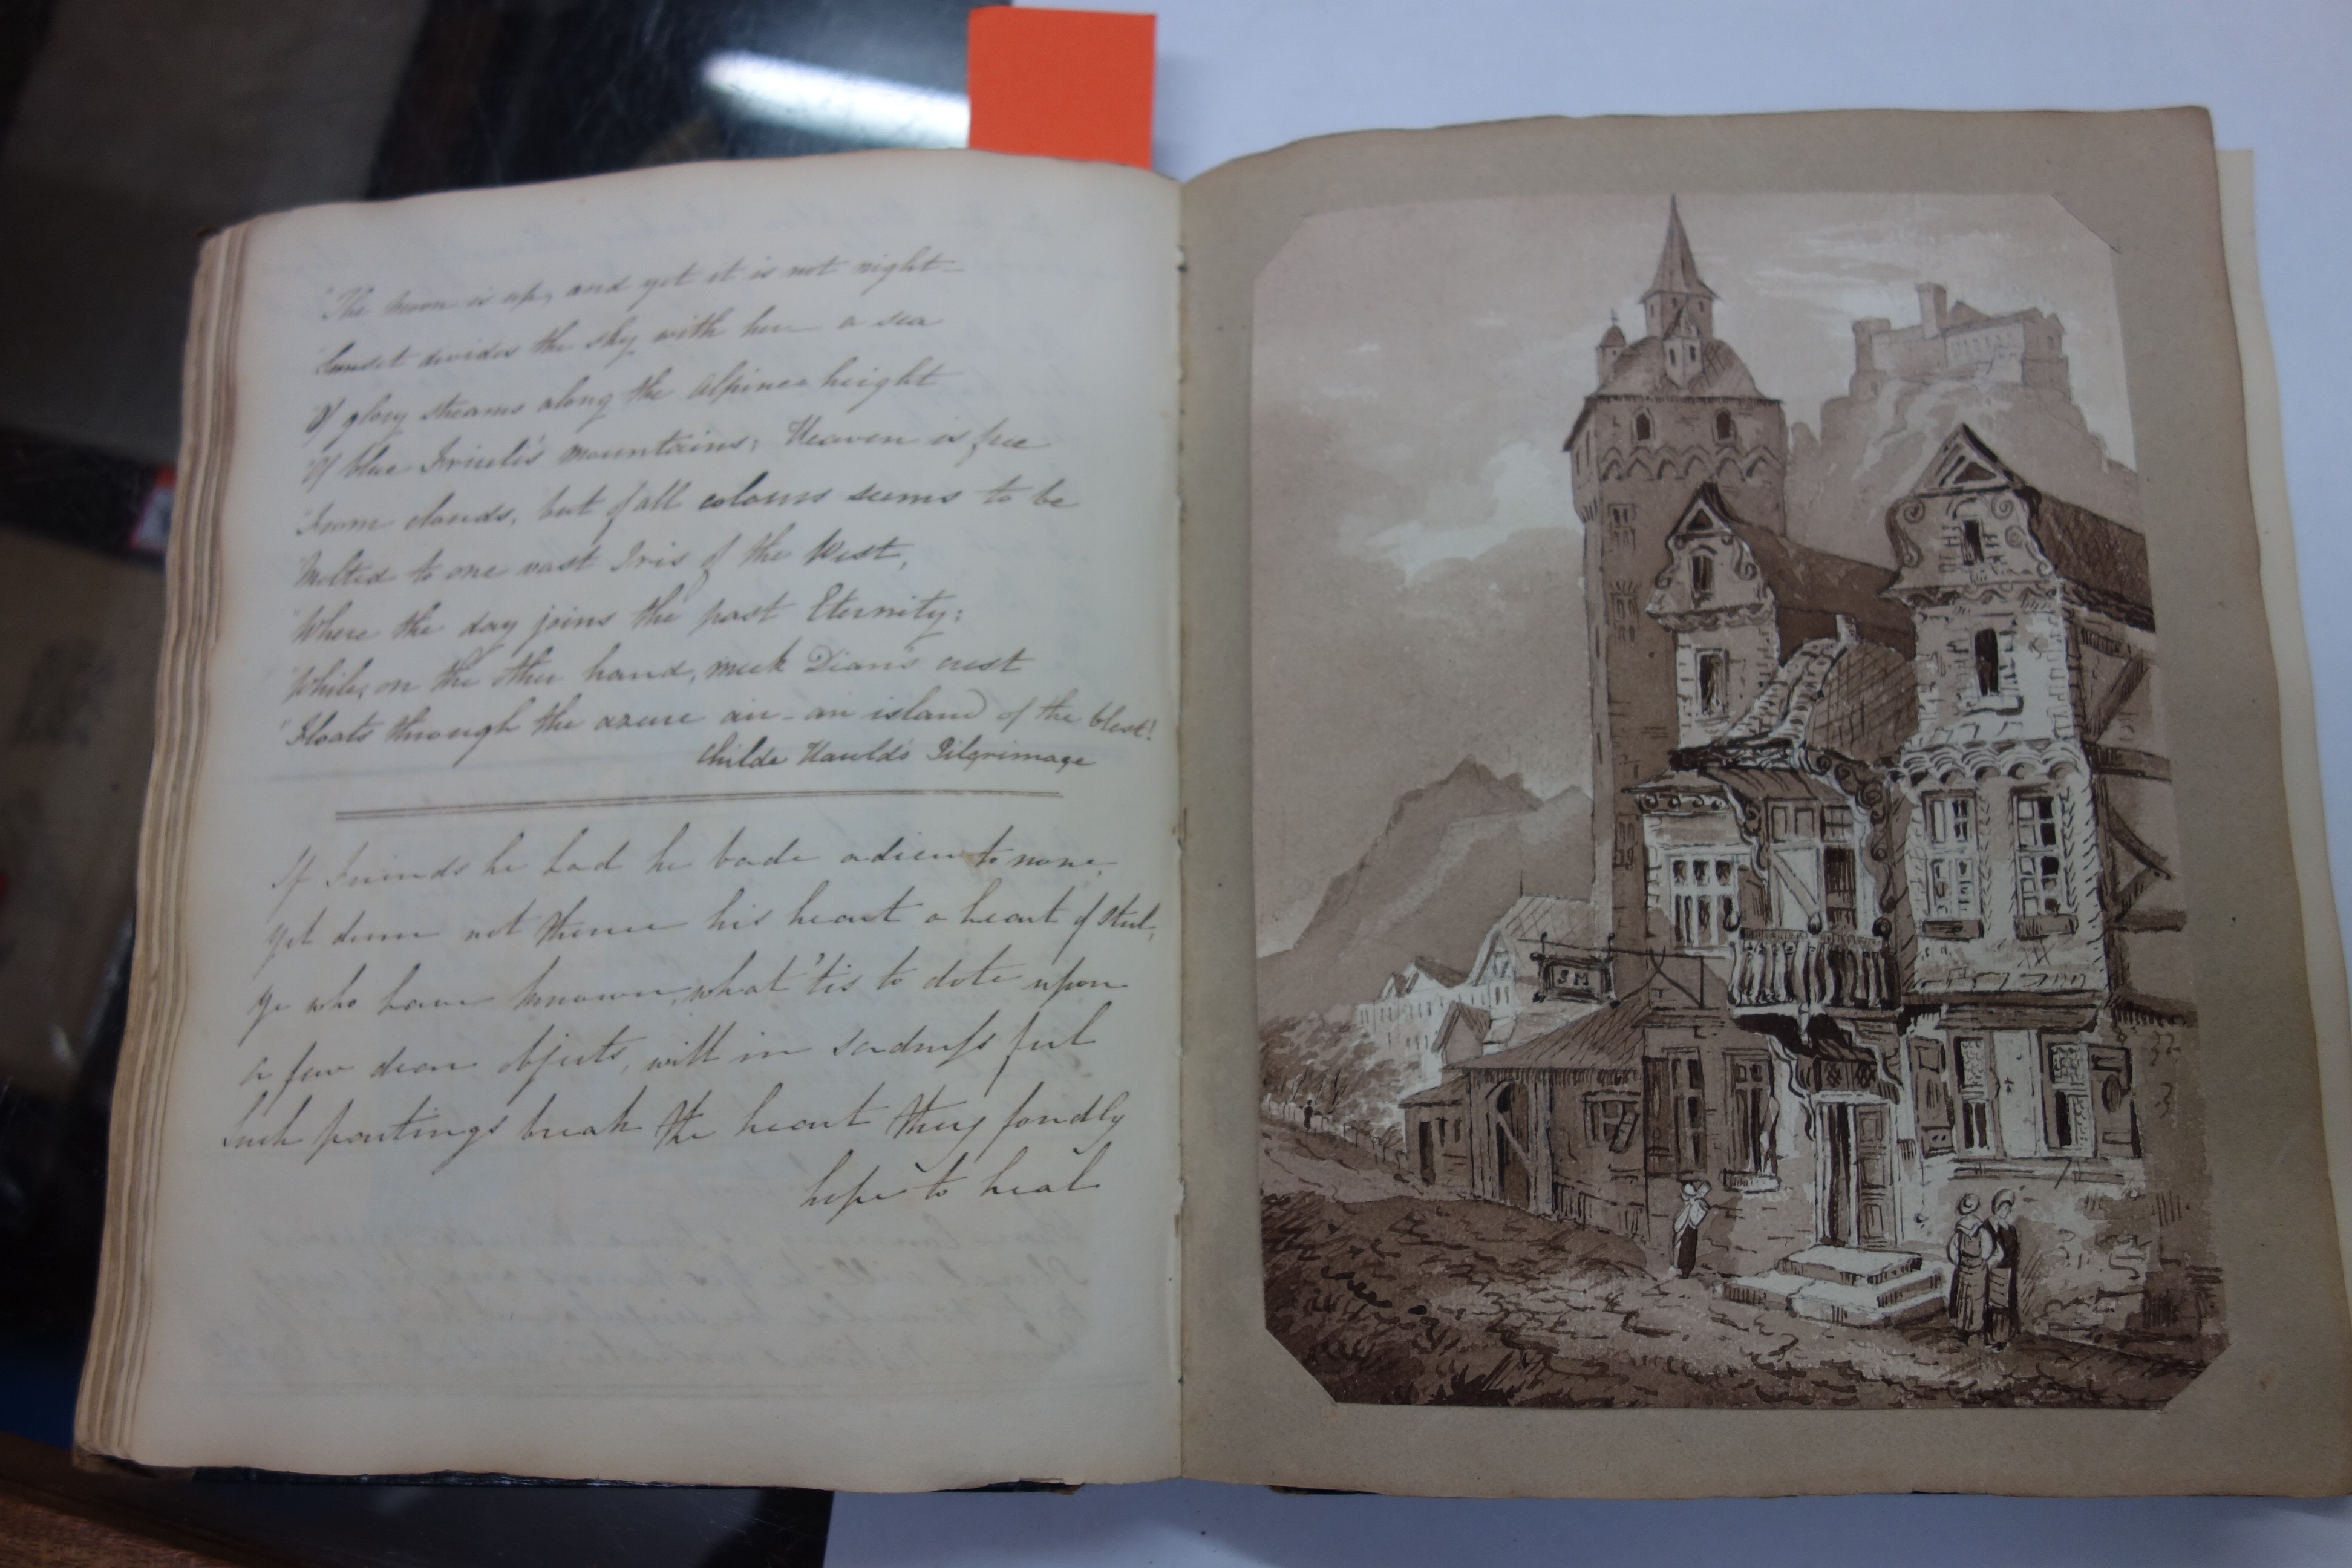 "The moon is up, and yet it is not night—
"Sunset divides the sky with her — a sea
"Of glory streams along the alpine height
"Of blue Friuli's mountains; Heaven is free
"From clouds, but of all colours seems to be
"Melted to one vast Iris of the West,
"Where the day joins the past Eternity;
"While, on the other hand, meek Dian's crest
"Floats through the azure air – an island of the blest!
Childe Harold's Pilgrimage
If Friends he had he bade adieu to none,
Yet deem not thence his heart a heart of steel,
Ye who have known what 'tis to dote upon
a few dear objects, will in sadness feel
Such partings break the heart they fondly
hope to heal
SM